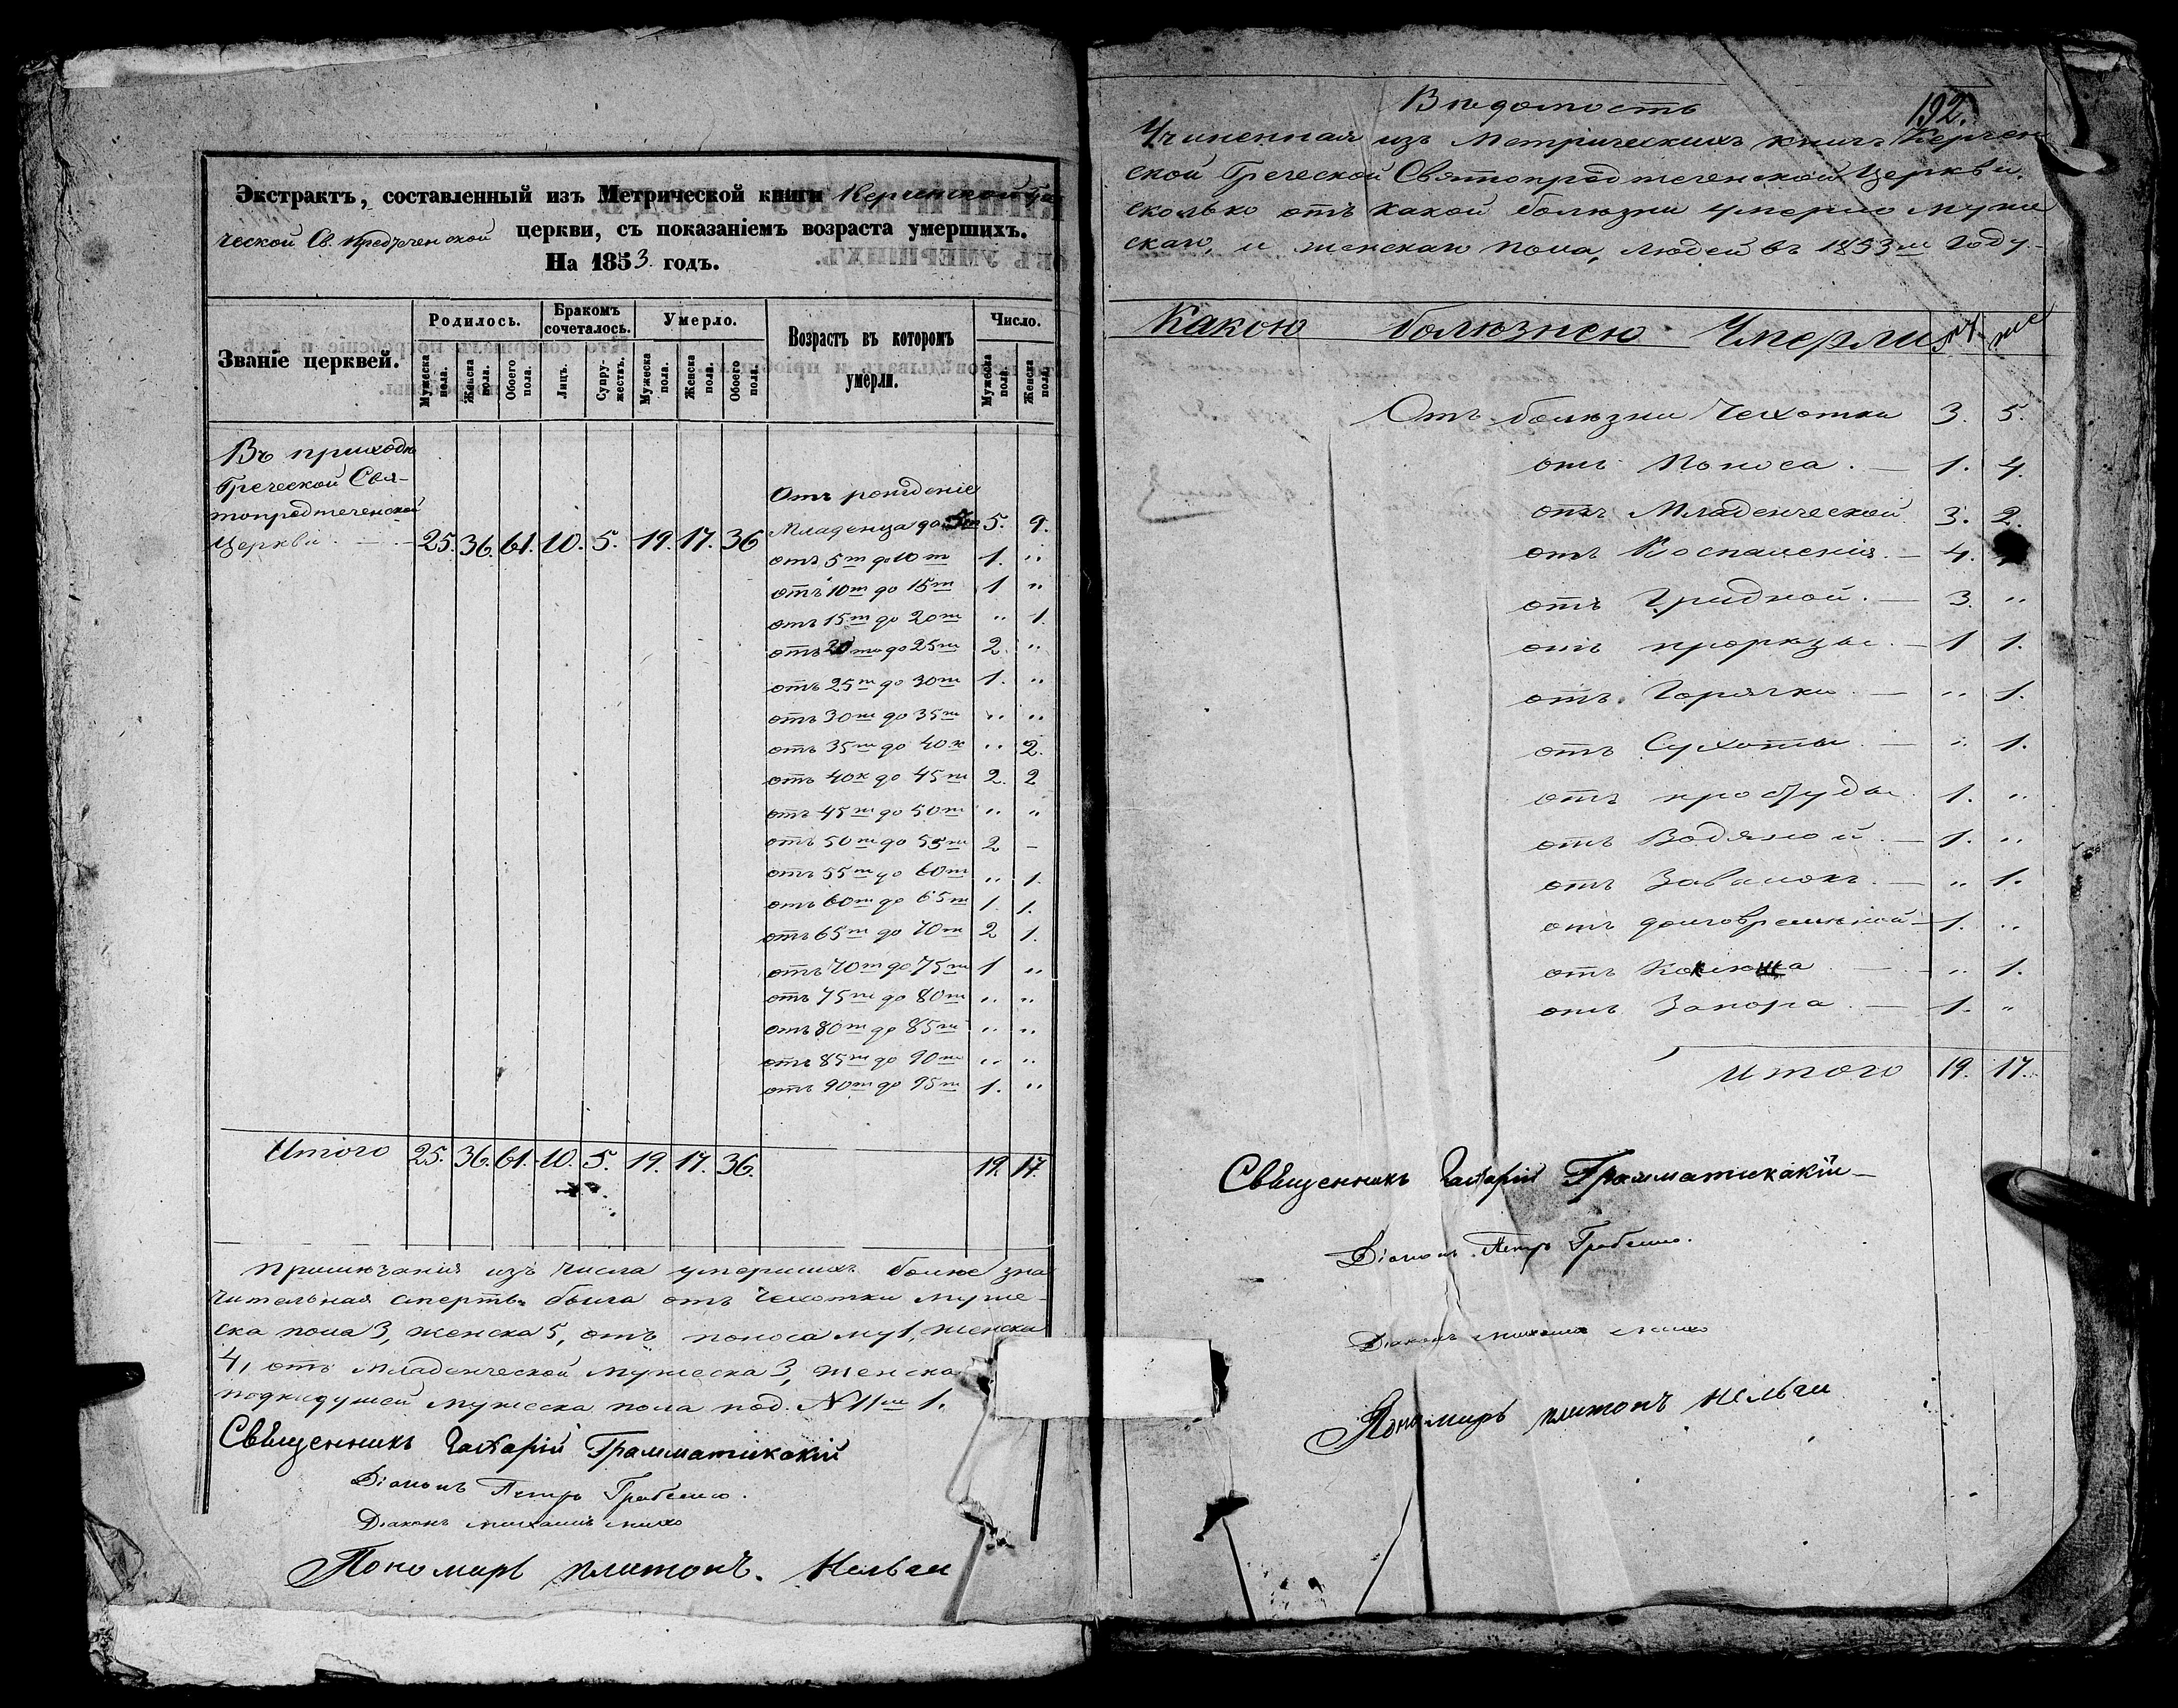 Экстрактъ, составленный изъ Метрической книги Керченской Гре
ческой Св. Предтеченской церкви, съ показаніемъ возраста умершихъ.
На 1853 годъ.
Званіе церквей. Родилось. Бракомъ сочеталось. Умерло. Возрастъ въ которомъ умерли. Число.
Мужеска пола. Женска пола. Обоего пола. Лицъ. Супружествъ. Мужеска пола. Женска пола. Обоего пола. Мужеска пола. Женска пола.
Въ приходѣ
Греческой Свя-
топредтеченской
Церкви 25. 36. 61. 10. 5. 19. 17. 36
Отъ рожденіе
Младенца до 5. 9.
отъ 5т до 10т 1. "
отъ 10т до 15т 1 "
отъ 15т до 20т " 1.
отъ 20ти до 25т 2. "
отъ 25т до 30т 1. "
отъ 30т до 35т " "
отъ 35т до 40к " 2.
отъ 40к до 45т 2. 2
отъ 45т до 50т " "
отъ 50т до 55т 2 -
отъ 55т до 60т " 1.
отъ 60т до 65т 1. 1.
отъ 65т до 70т 2 1.
отъ 70т до 75т 1 "
отъ 75т до 80т " "
отъ 80т до 85т " "
отъ 85т до 90т " "
отъ 90т до 95т 1. "
Итого 25. 36. 61. 10. 5. 19. 17. 36. 19. 17.
Примѣчанія изъ числа умершихъ болѣе зна
чительная смерть была отъ Чехотки муже-
ска пола 3, женска 5, отъ поноса му 1, женска
4, отъ Младенческой мужеска 3, женска
подкидушей мужеска пола под. N 11м 1.
Священникъ Грамматикакій
Діаконъ Петръ
Діаконъ Михаилъ
Пономарь Платонъ
192.
Вѣдомость
Учиненная изъ Метрическихъ книгъ Керчен
ской Греческой Святопредтеченской Церкви.
сколько отъ какой болѣзни умерло муже
скаго, и женскаго пола, людей въ 1853м году.
Какою болѣзнею Умерли м. же
Отъ болѣзни Чехотки 3. 5.
отъ Поноса. — 1. 4.
отъ Младенческой 3. 2.
отъ Воспаленія. — 4.
отъ Грудной. — 3. "
отъ прорѣзы. — 1 1.
отъ Горячки — " 1.
отъ Сухоты — " 1.
отъ простуды 1. "
отъ Водяной — 1. "
отъ Завалокъ. — " 1.
отъ долговремѣнной — 1. "
отъ Коклюша — " 1.
отъ Запора. — 1. "
Итого 19. 17.
Священникъ Грамматикакій
Діаконъ Петръ
Діаконъ Михаилъ
Пономарь Платонъ